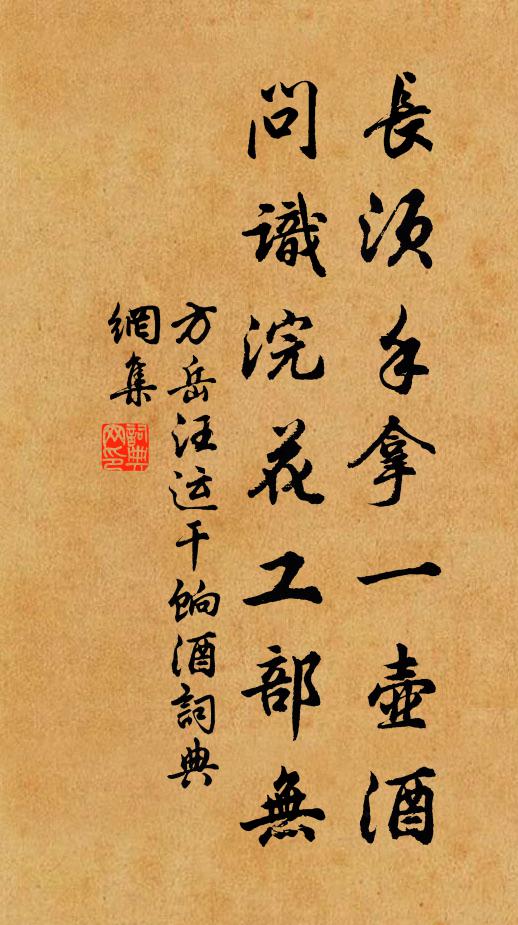 長須手拿一壺酒
問識浣花工部無
方岳汪运干餉酒詞典
網集
詞典
网印